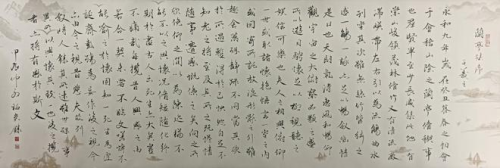 蘭亭集序
永和九年歲在癸丑暮春之初會
于會稽山陰之蘭亭脩稧事
也羣賢畢至少長咸集此地有
崇山峻領茂林脩竹又有清流激
湍暎帶左右引以為流觴曲水
列坐其次雖無絲竹管弦之
盛一觴一詠亦足以暢敘幽情
是日也天朗氣清惠風和暢仰
觀宇宙之大俯察品類之盛
所以遊目騁懷足以極視聽之
娛信可樂也夫人之相與俯仰
一世或取諸懷抱悟言一室之內
或因寄所託放浪形骸之外雖
趣舍萬殊靜躁不同當其欣
於所遇暫得於己快然自足不
知老之將至及其所之既惓情
隨事遷感慨係之矣向之所
欣俛仰之間以為陳迹猶不
能不以之興懷況脩短隨化終
期於盡古人云死生亦大矣豈
不痛哉每攬昔人興感之由
若合一契未嘗不臨文嗟悼不
能喻之於懷固知一死生為虛誕
齊彭殤為妄作後之視今亦
由今之視昔悲夫故列
敘時人錄其所述雖世殊事
異所以興懷其致一也後之攬
者亦將有感於斯文